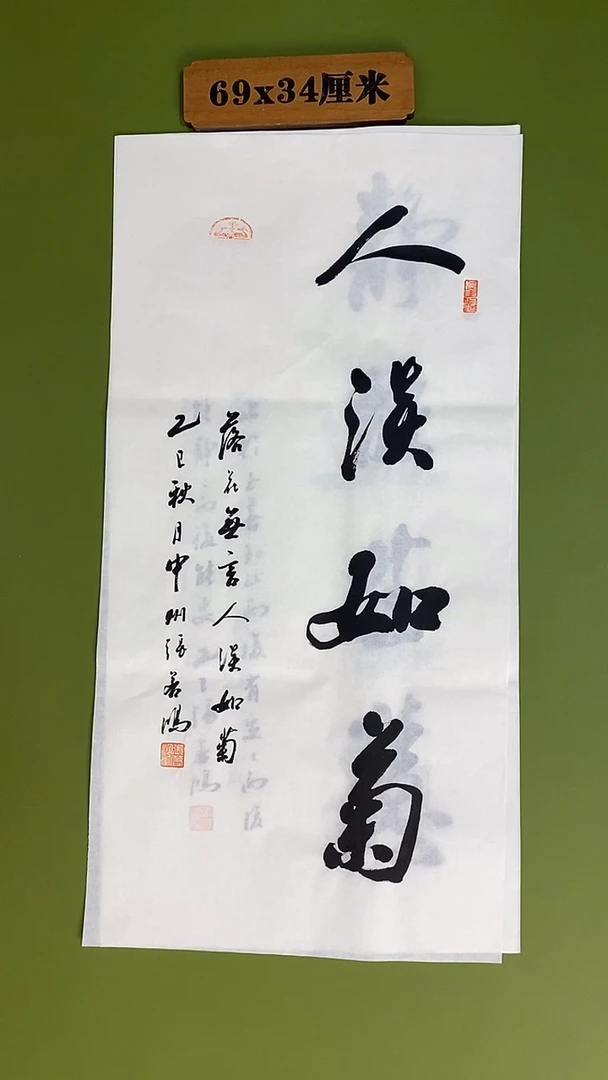 69x34厘米
人淡如菊
落花無言人淡如菊
乙巳秋月中州張善鴻